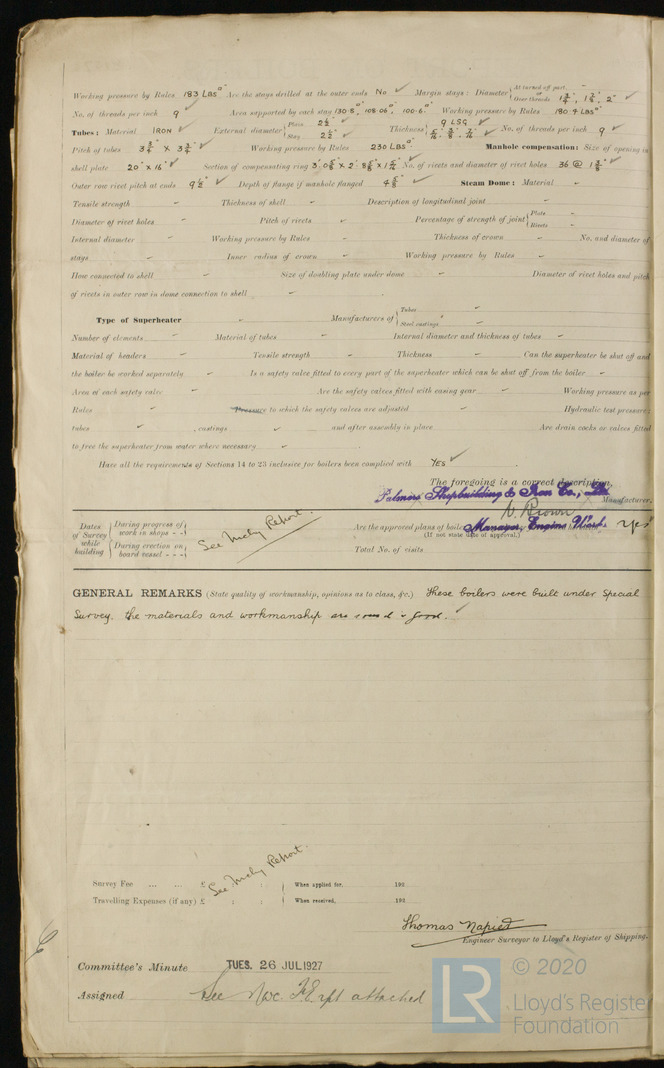 Working pressure by Rules 183 Lbs□" Are the stays drilled at the outer ends No ✓ Margin stays: Diameter { At turned off part, - or Over threads 1 3/4", 1 7/8", 2" ✓
No. of threads per inch 9 Area supported by each stay 130.5□", 108.06□", 100.6□" Working pressure by Rules 180.4 Lbs□"
Tubes: Material IRON ✓ External diameter { Plain 2 1/2" ✓ Stay 2 1/2" ✓ Thickness { 9 LSG ✓ 5/16", 3/8", 7/16" ✓ No. of threads per inch 9 ✓
Pitch of tubes 3 3/4" x 3 3/4" ✓ Working pressure by Rules 230 Lbs□" Manhole compensation: Size of opening in
shell plate 20" x 16" ✓ Section of compensating ring 3' 0 5/8" x 2' 8 5/8" x 1 5/16" ✓ No. of rivets and diameter of rivet holes 36 @ 1 3/8" ✓
Outer row rivet pitch at ends 9 1/2" ✓ Depth of flange if manhole flanged 4 5/8" ✓ Steam Dome: Material -
Tensile strength - Thickness of shell - Description of longitudinal joint -
Diameter of rivet holes - Pitch of rivets - Percentage of strength of joint { Plate - Rivets -
Internal diameter - Working pressure by Rules - Thickness of crown - No. and diameter of
stays - Inner radius of crown - Working pressure by Rules -
How connected to shell - Size of doubling plate under dome - Diameter of rivet holes and pitch
of rivets in outer row in dome connection to shell -
Type of Superheater - Manufacturers of { Tubes - Steel castings -
Number of elements - Material of tubes - Internal diameter and thickness of tubes -
Material of headers - Tensile strength - Thickness - Can the superheater be shut off and
the boiler be worked separately - Is a safety valve fitted to every part of the superheater which can be shut off from the boiler -
Area of each safety valve - Are the safety valves fitted with easing gear - Working pressure as per
Rules - Pressure to which the safety valves are adjusted - Hydraulic test pressure:
tubes - , castings - and after assembly in place - Are drain cocks or valves fitted
to free the superheater from water where necessary -
Have all the requirements of Sections 14 to 23 inclusive for boilers been complied with YES ✓
The foregoing is a correct description,
Palmers Shipbuilding & Iron Co., Ltd
Manufacturer.
Brown
Manager, Engine Works.
Dates of Survey while building { During progress of work in shops - - } { During erection on board vessel - - - } See Mchy Report.
Are the approved plans of boiler yes
(If not state date of approval.)
Total No. of visits
GENERAL REMARKS (State quality of workmanship, opinions as to class, &c.) These boilers were built under Special
Survey. the materials and workmanship are sound & good. ✓
See Mchy Report.
Survey Fee ... ... £ : : When applied for, 192
Travelling Expenses (if any) £ : : When received, 192
Thomas Napier
Engineer Surveyor to Lloyd's Register of Shipping.
Committee's Minute TUES. 26 JUL 1927
Assigned See Nwc. F.E. rpt attached
LR © 2020
Lloyd's Register
Foundation